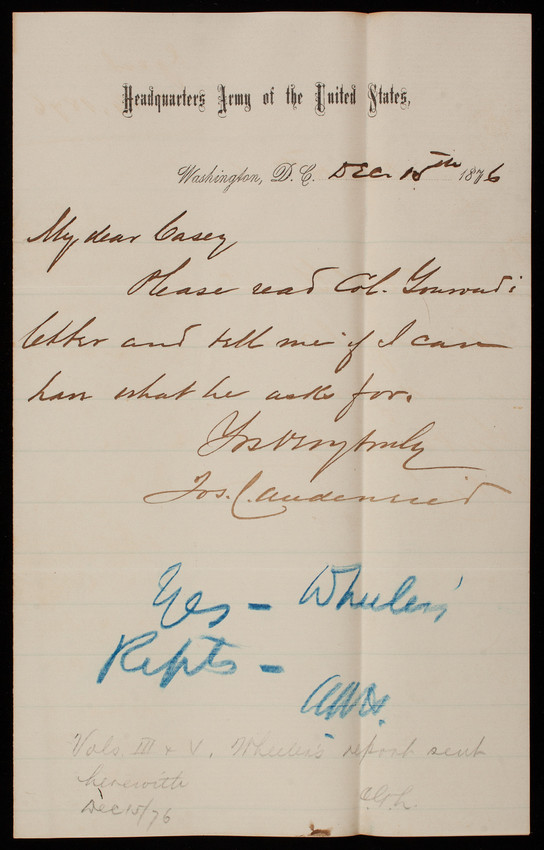 Headquarters Army of the United States,
Washington, D.C. Dec 15th 1876
My dear Casey
Please read Col.
letter and tell me if I can
have what he asks for.
Yrs very truly
Jos. C. Audenried
Yes - Wheeler's
Repts -
Vols III & V. Wheeler's report sent
herewith
Dec 15/76